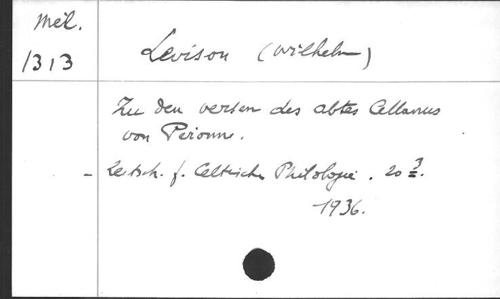 Mél.
1313
Levison (Wilhelm)
Zu den versen des abtes Cellanus
von Péronne.
- Zeitsch. f. Celtische Philologie. 20
1936.